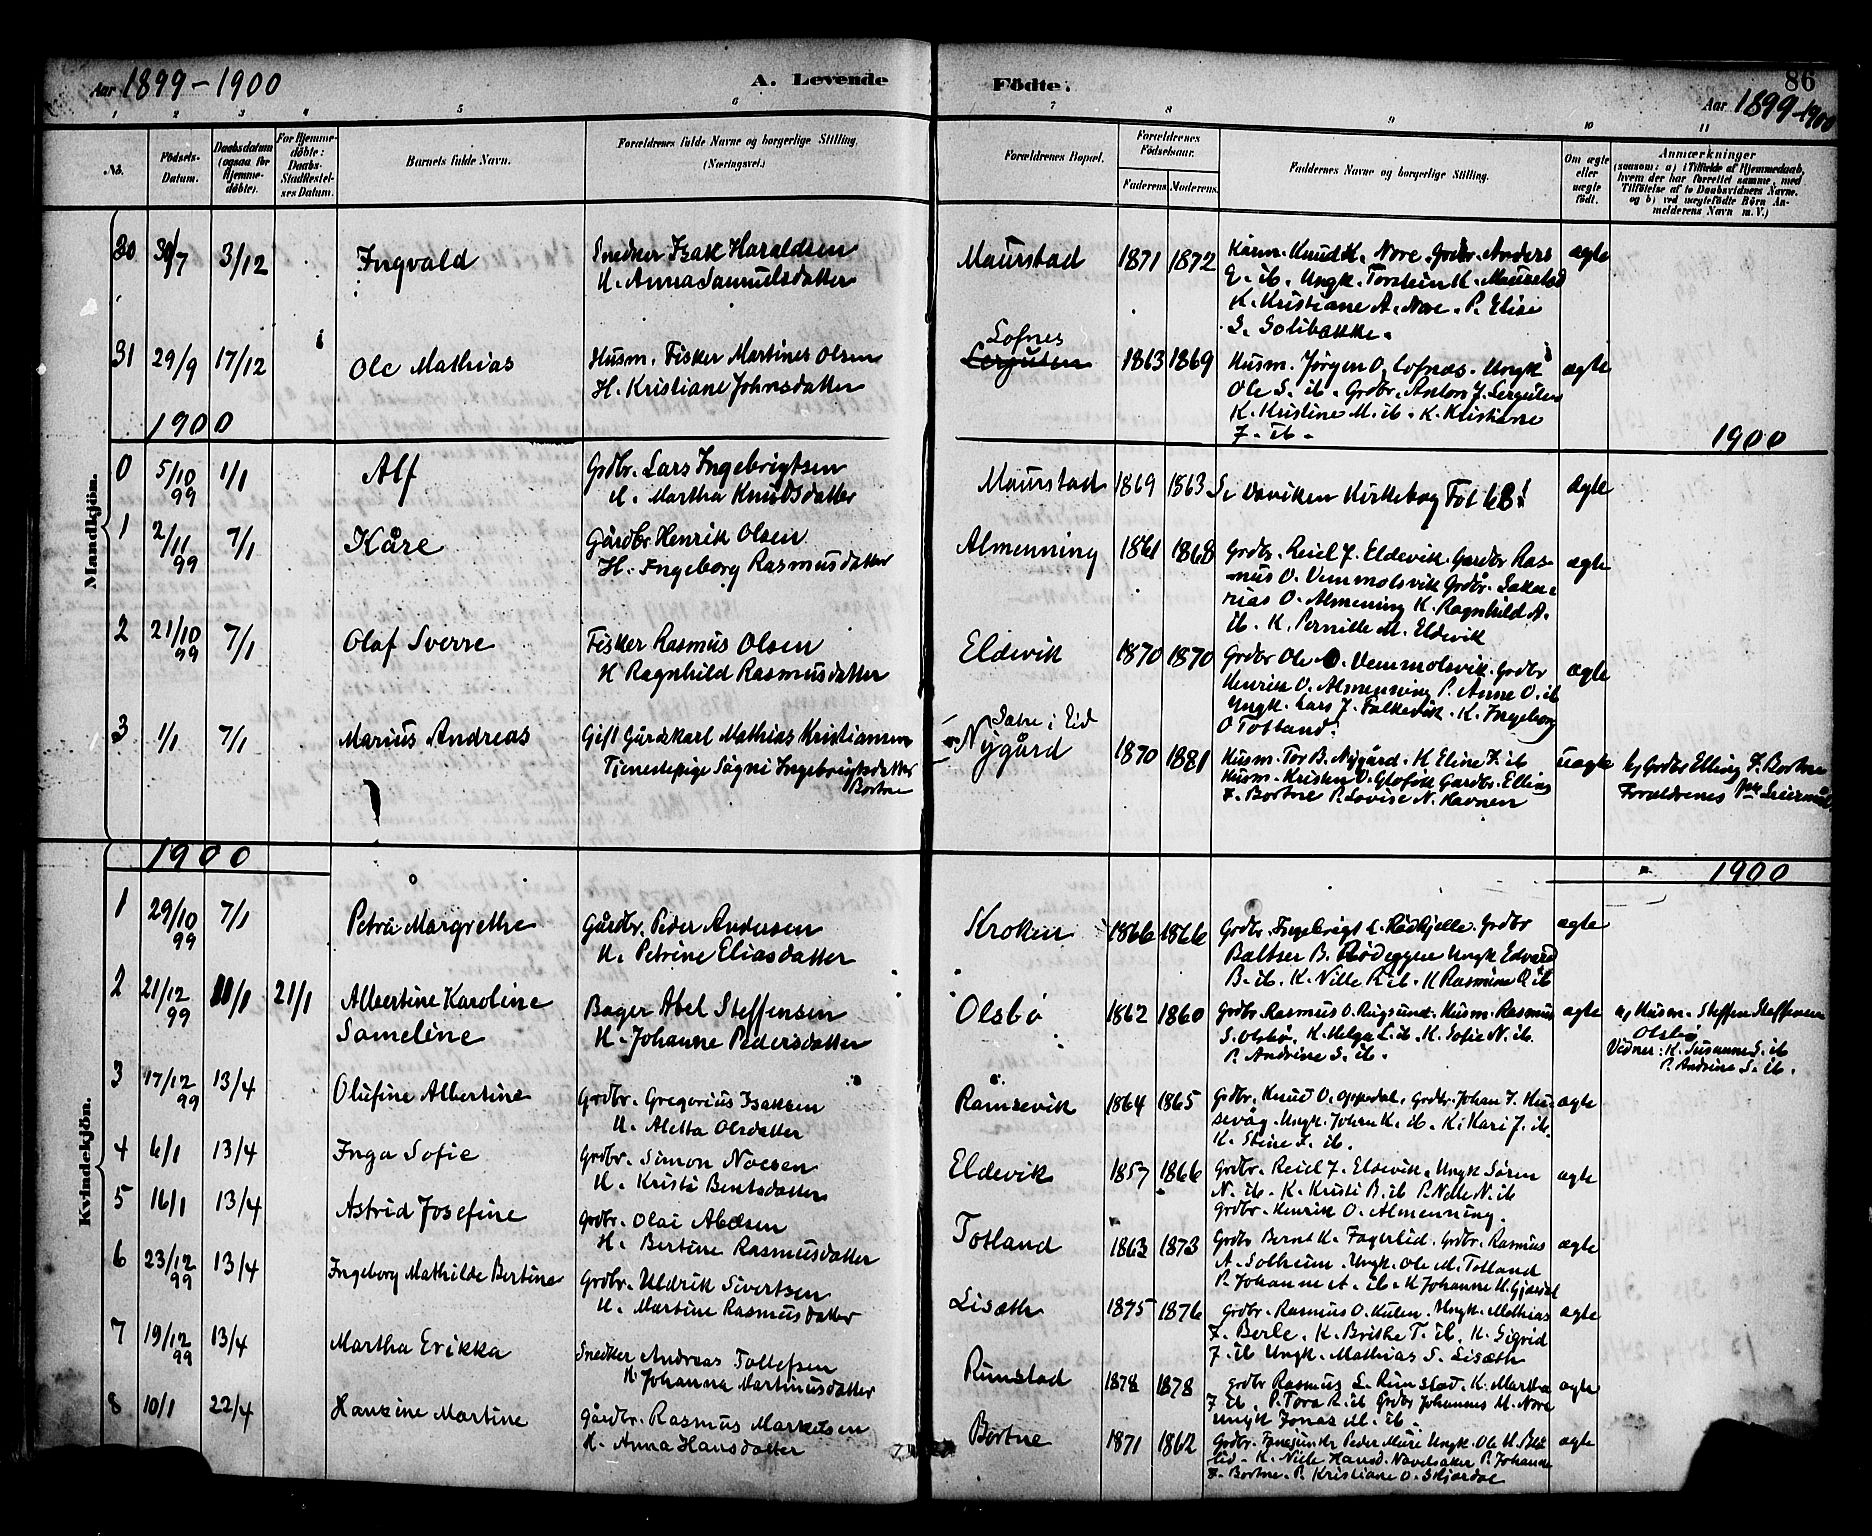 Aar 1899-1900
A. Levende Födte.
86
Aar 1899-1900
1 2 3 4 5 6 7 8 9 10 11
No.
Födsels-Datum.
Daabsdatum (ogsaa for Hjemmedöbte).
For Hjemmedöbte: Daabs-Stadfæstelses Datum.
Barnets fulde Navn.
Forældrenes fulde Navne og borgerlige Stilling. (Næringsvei.)
Forældrenes Bopæl.
Forældrenes Födselsaar.
Faderens. Moderens.
Faddernes Navne og borgerlige Stilling.
Om ægte eller uægte födt.
Anmærkninger
(saasom: a) i Tilfælde af Hjemmedaab,
hvem der har forrettet samme, med
Tilföielse af to Daabsvidners Navne.
og b) ved uægtefödte Börn Anmelderens Navn m. V.)
Mandkjön.
30 30/7 3/12 Ingvald Snedker Isak Haraldsen Maurstad 1871 1872 Kårm. Knud K. Nore. Grdbr. Anders ægte
H. Anna Samuelsdatter E. ib. Ungk. Torstein K. Maurstad
K. Kristiane A. Nore. P. Elise
S. Solibakke.
31 29/9 17/12 Ole Mathias Husm. Fisker Martines Olsen Lofnes 1863 1869 Husm. Jørgen O. Lofnes. Ungk ægte
H. Kristiane Johnsdatter Ole S. ib. Grdbr. Anton J. Lerguten
K. Kristine M. ib. K. Kristiane
J. ib.
1900 1900
0 5/10 99 1/1 Alf Grdbr. Lars Ingebrigtsen Maurstad 1869 1863 Se Daviken Kirkebog Fol 68! Ægte
H. Martha Knudsdatter
1 2/11 99 7/1 Kåre Gårdbr Henrik Olsen Almenning 1861 1868 Grdbr. Reiel J. Eldevik. Gardbr Ras- ægte
H. Ingeborg Rasmusdatter mus O. Vemmolsvik Grdbr. Saka-
rias O. Almening K. Ragnhild A.
ib. K. Pernille M. Eldevik
2 21/10 99 7/1 Olaf Sverre Fisker Rasmus Olsen Eldevik 1870 1870 Grdbr Ole O. Vemmolsvik. Grdbr ægte
H Ragnhild Rasmusdatter Henrik O. Almenning P. Anne O. ib
Ungk. Lars J. Falkevik. K. Ingeborg
O Totland.
3 1/1 7/1 Marius Andreas Gift Gårdskarl Mathias Kristiansen Satre i Eid Nygård 1870 1881 Husm. Tor B. Nygård. K Eline F. ib uægte b) Grdbr Elling F. Bortne
Tjenestepige Sagni Ingebrigtsdatter Bortne Husm. Kristen O. Gloføk Gardbr. Elling Forældrenes Leiermål
F. Bortne P. Lovise N. Havnen
1900 1900
Kvindekjön.
1 29/10 99 7/1 Petra Margrethe Gårdbr. Peder Andersen Kroken 1866 1866 Grdbr. Ingebrigt L. Rødkjelle. Grdbr ægte
H. Petrine Eliasdatter Baltser B. Rødeggen Ungk Edvard
B. ib. K. Nille R. ib. K Rasmine O. ib
2 21/12 99 11/1 21/1 Albertine Karoline Bager Abel Steffensen Olsbø 1862 1860 Grdbr. Rasmus O. Rugsund. Husm. Rasmus ægte a) Husm. Steffen Steffensen
Sameline H. Johanne Pedersdatter S. Olsbø. K. Helga L. ib. K. Sofie N. ib. Olsbø
P. Andrine S. ib. Vidner: K. Susanne S. ib
P. Andrine S. ib.
3 17/12 99 13/4 Olufine Albertine Grdbr. Gregorius Isaksen Ramsevik 1864 1865 Grdbr. Knud O. Oppedal. Grdbr. Johan J. Hu- ægte
H. Aletta Olsdatter sevåg. Ungk. Johan K. ib. K. Kari J. ib.
K. Stine J. ib.
4 6/1 13/4 Inga Sofie Grdbr. Simon Noesen Eldevik 1857 1866 Grdbr. Reiel J. Eldevik. Ungk Søren ægte
H. Kristi Bentsdatter N. ib. K. Kristi B. ib P. Nille N. ib
Grdbr. Henrik O. Almenning.
5 16/1 13/4 Astrid Josefine Grdbr. Olai Abelsen Totland 1863 1873 Grdbr Bernt K. Fagerlid. Grdbr. Rasmus ægte
H. Bertine Rasmusdatter A. Solheim. Ungk. Ole M. Totland
P. Johanne A. ib. K Johanne H. Gjærdal
6 23/12 99 13/4 Ingeborg Mathilde Bertine Grdbr. Uldrik Sivertsen Lisæth 1875 1876 Grdbr. Rasmus O. Hulen. Ungk. Mathias ægte
H. Martine Rasmusdatter J. Berle. K. Brithe T. ib. K. Sigrid
J. ib Ungk. Mathias S. Lisæth
7 19/12 99 13/4 Martha Erikka Snedker Andreas Tollefsen Rimstad 1878 1878 Grdbr Rasmus L. Rimstad. K. Martha ægte
H. Johanna Martinusdatter J. ib. P. Tora R. ib Grdbr Johannes M. Nore
Ungk Jonas M. ib.
8 10/1 22/4 Hansine Martine Gårdbr. Rasmus Markusen Bortne 1871 1862 Grdbr. Peder Muri Ungk. Ole H. ægte
H. Anna Hansdatter lid. K. Nille Hansd. Navelsaker P. Johanne
F. Bortne. P. Kristiane O. Skjærdal